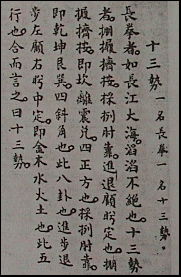 十三勢 一名長拳 一名十三勢。
長拳者。如長江大海。滔滔不絕也。十三勢
者。掤攦擠按。採挒肘靠。進退顧盼定也。掤
攦擠按。即坎離震兌四正方也。採挒肘靠。
即乾坤艮巽。四斜角也。此八卦也。進步退
步。左顧右盼中定。即金木水火土也。此五
行也。合而言之。曰十三勢。